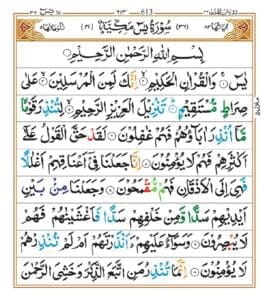 613
سُوْرَةُ يٰسٓ مَكِّيَّةٌ
بِسْمِ اللّٰهِ الرَّحْمٰنِ الرَّحِيْمِ
يٰسٓ وَالْقُرْاٰنِ الْحَكِيْمِ اِنَّكَ لَمِنَ الْمُرْسَلِيْنَ عَلٰى
صِرَاطٍ مُّسْتَقِيْمٍ تَنْزِيْلَ الْعَزِيْزِ الرَّحِيْمِ لِتُنْذِرَ قَوْمًا
مَّاۤ اُنْذِرَ اٰبَآؤُهُمْ فَهُمْ غٰفِلُوْنَ لَقَدْ حَقَّ الْقَوْلُ عَلٰۤى
اَكْثَرِهِمْ فَهُمْ لَا يُؤْمِنُوْنَ اِنَّا جَعَلْنَا فِيْۤ اَعْنَاقِهِمْ اَغْلٰلًا
فَهِيَ اِلَى الْاَذْقَانِ فَهُمْ مُّقْمَحُوْنَ وَجَعَلْنَا مِنْۢ بَيْنِ
اَيْدِيْهِمْ سَدًّا وَّمِنْ خَلْفِهِمْ سَدًّا فَاَغْشَيْنٰهُمْ فَهُمْ
لَا يُبْصِرُوْنَ وَسَوَآءٌ عَلَيْهِمْ ءَاَنْذَرْتَهُمْ اَمْ لَمْ تُنْذِرْهُمْ
لَا يُؤْمِنُوْنَ اِنَّمَا تُنْذِرُ مَنِ اتَّبَعَ الذِّكْرَ وَخَشِيَ الرَّحْمٰنَ